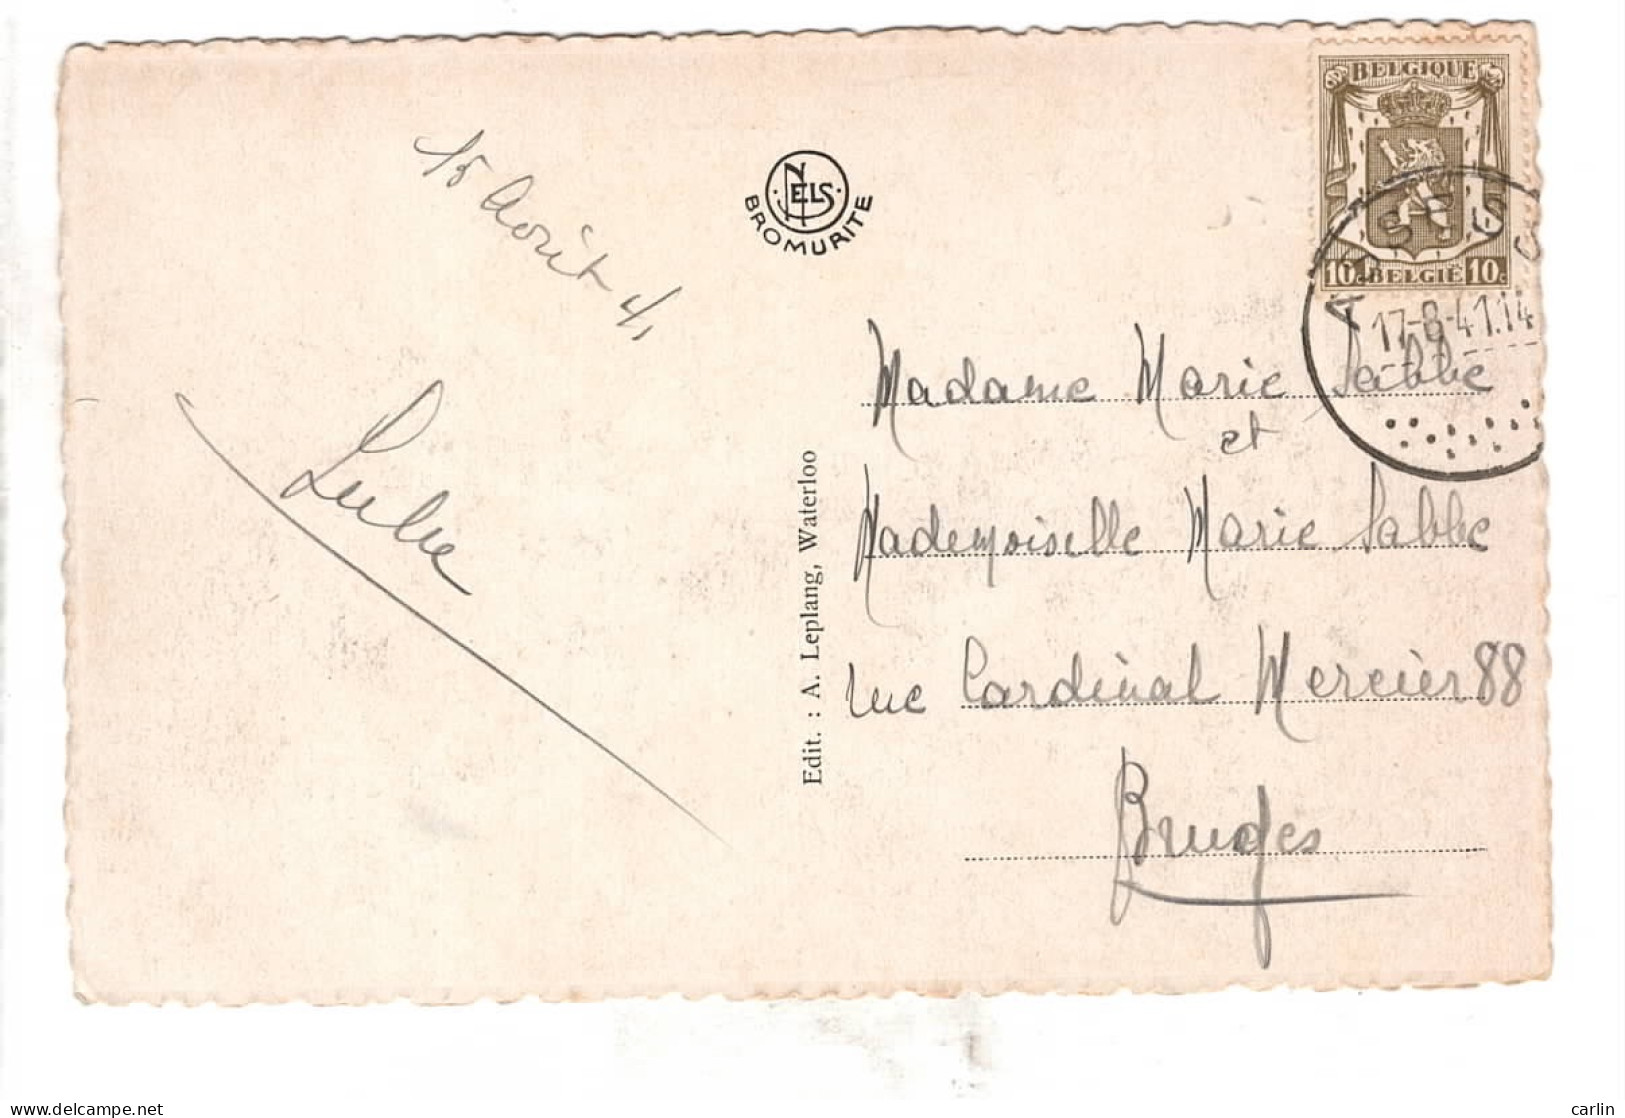 15 Août 41
NELS
BROMURITE
BELGIQUE
10c BELGIË 10c
17-8-41.14
Madame Marie Sabbe
et
Mademoiselle Marie Sabbe
rue Cardinal Mercier 88
Bruges
Edit. : A. Leplang, Waterloo
delcampe.net
carlin